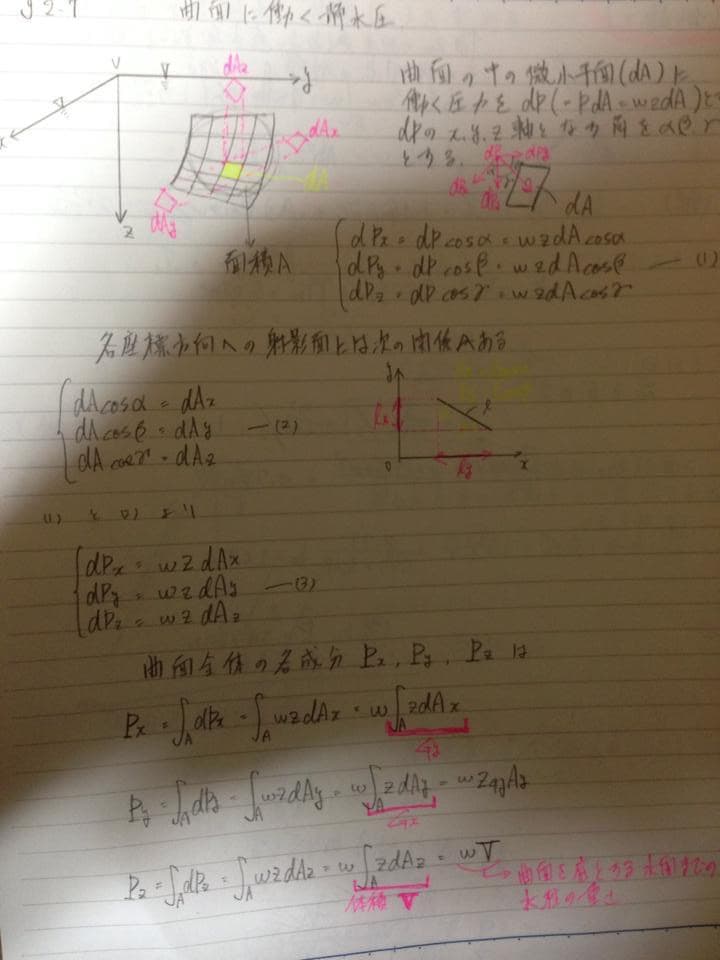 §2.7 曲面に働く静水圧
曲面の中の微小平面(dA)に
働く圧力をdP(=PdA=wzdA)と
dPのx,y,z軸となす角をα,β,γ
とする.
dAz
y
x
z
dAx
dA
dAy
面積A
dA
dPx = dPcosα = wzdAcosα
dPy = dPcosβ = wzdAcosβ —(1)
dPz = dPcosγ = wzdAcosγ
各座標方向への射影面上は次の関係がある
dAcosα = dAx
dAcosβ = dAy —(2)
dAcosγ = dAz
y
l
0
x
(1)と(2)より
dPx = wzdAx
dPy = wzdAy —(3)
dPz = wzdAz
曲面全体の各成分Px,Py,Pzは
Px = ∫A dPx = ∫A wzdAx = w∫A zdAx
Py = ∫A dPy = ∫A wzdAy = w∫A zdAy = wZGyAy
Pz = ∫A dPz = ∫A wzdAz = w∫A zdAz = wV
体積V
曲面を底とする水面までの
水柱の重さ